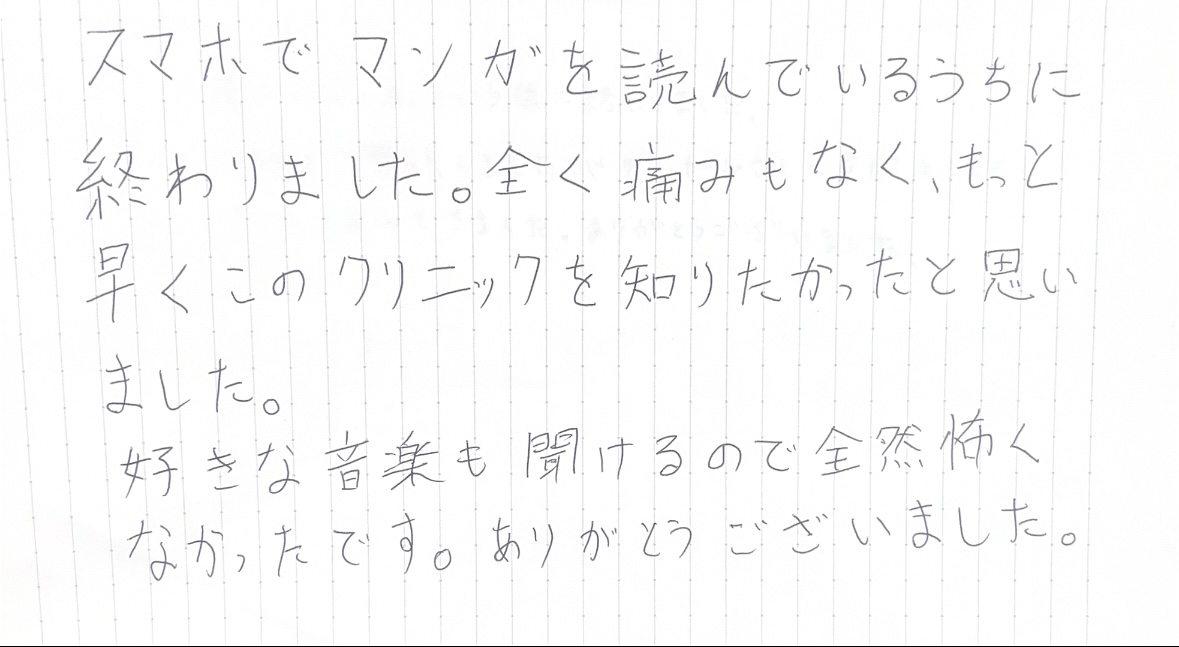 スマホでマンガを読んでいるうちに
終わりました。全く痛みもなく、もっと
早くこのクリニックを知りたかったと思い
ました。
好きな音楽も聞けるので全然怖く
なかったです。ありがとうございました。